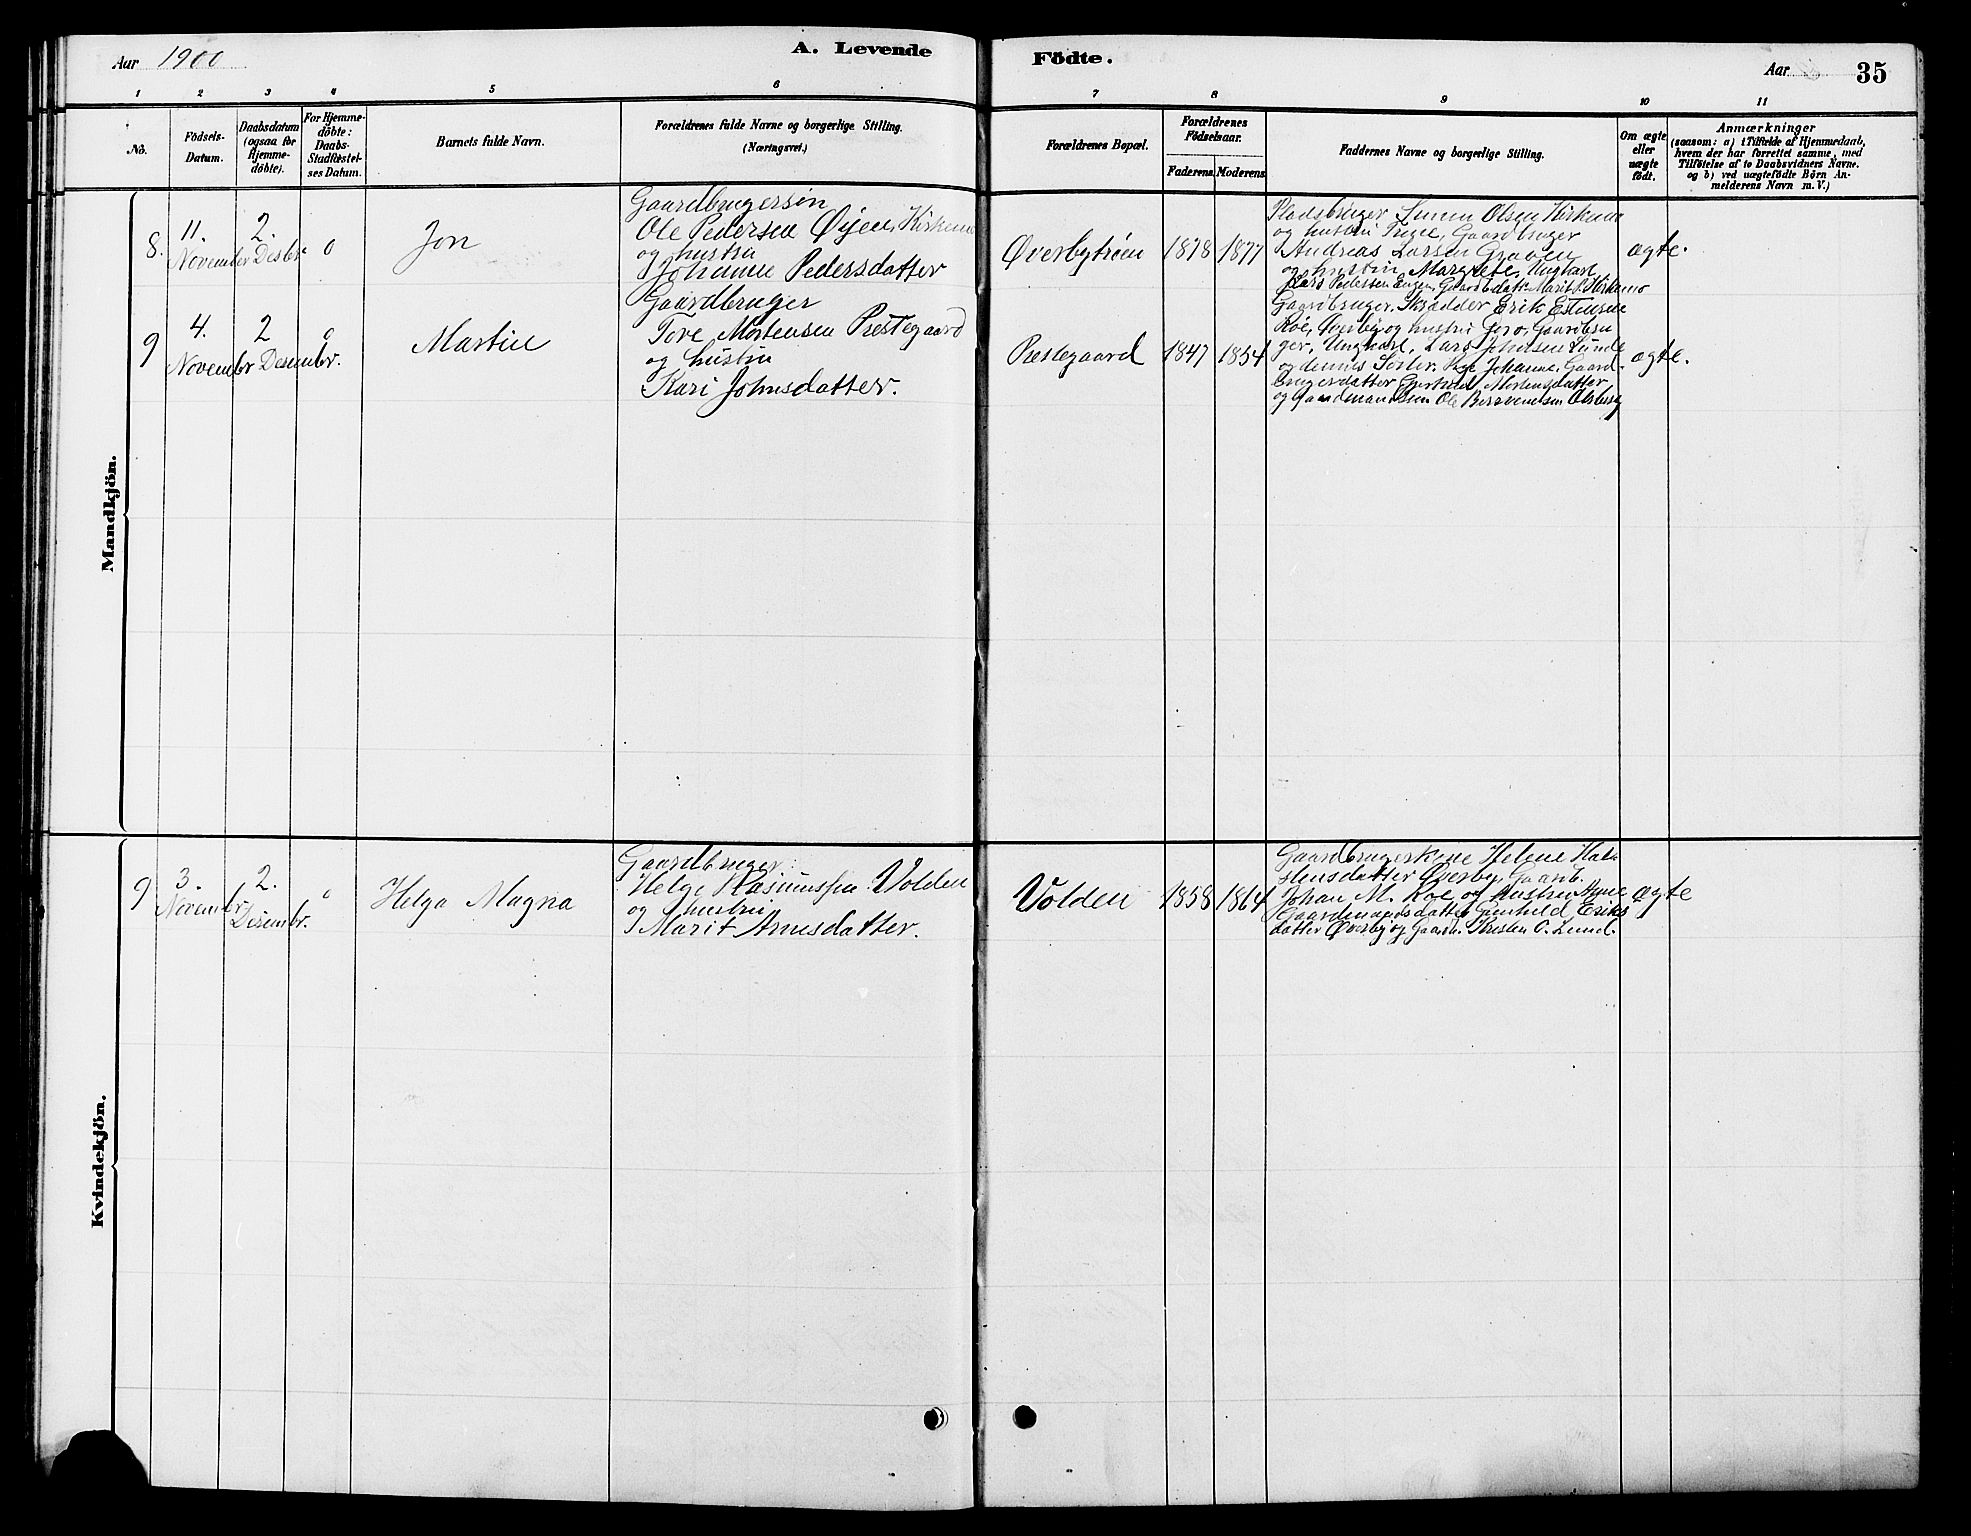 Aar 1900
A. Levende
Födte.
Aar
35
1 2 3 4 5 6 7 8 9 10 11
No.
Födsels-
Datum.
Daabsdatum
(ogsaa for
Hjemme-
döbte).
For Hjemme-
döbte:
Daabs-
Stadfæstel-
ses Datum.
Barnets fulde Navn.
Forældrenes fulde Navne og borgerlige Stilling.
(Næringsvei.)
Forældrenes Bopæl.
Forældrenes
Födselsaar.
Faderens Moderens
Faddernes Navne og borgerlige Stilling.
Om ægte
eller
uægte
født.
Anmærkninger
(saasom: a) i Tilfælde af Hjemmedaab,
hvem der har forrettet samme, med
Tilföielse af to Daabsvidners Navne.
og b) ved uægtefödte Börn An-
melderens Navn m. V.)
Mandkjön.
8.
11.
November
2.
Desbr
0
Jon
Gaardbrugersøn
Ole Pedersen Øien, Kirkemo
og hustru
Johanne Pedersdatter
Øverbytrøen
1878
1877
Pladsbruger Simen Olsen Kirkemo
og hustru Gaardbruger
Andreas Larsen Graaen
og hustru Margrete, Ungkarl
Lars Pedersen Engen, Gaardb.datt. Marit Kirkemo
ægte.
9
4.
November
2
Desembr.
0
Martin
Gaardbruger
Tore Mortensen Prestegaard
og hustru
Kari Johnsdatter.
Prestegaard
1847
1854
Gaardbruger, Skrædder Erik Estensen
Roe, Øverby og hustru Goro, Gaardbru
ger, Ungkarl, Lars Johnsen Lunde
og dennes Søster, Pige Johanne, Gaard-
brugerdatter Gjertrud Mortensdatter
og Gaardmandssøn Ole Olsberg
ægte.
Kvindekjön.
9
3.
November
2.
Desembr.
0
Helga Magna
Gaardbruger
Helge Rasmussen Volden
og hustru
Marit Arnesdatter.
Volden
1858
1864
Gaardbrugerkone Helene Hal-
stensdatter Øverby, Gaardb.
Johan M. Roe og hustru
Gaardmandsdatter Gunhild Eriks
datter Øverby og Gaardb. Kristen O. Lund.
ægte